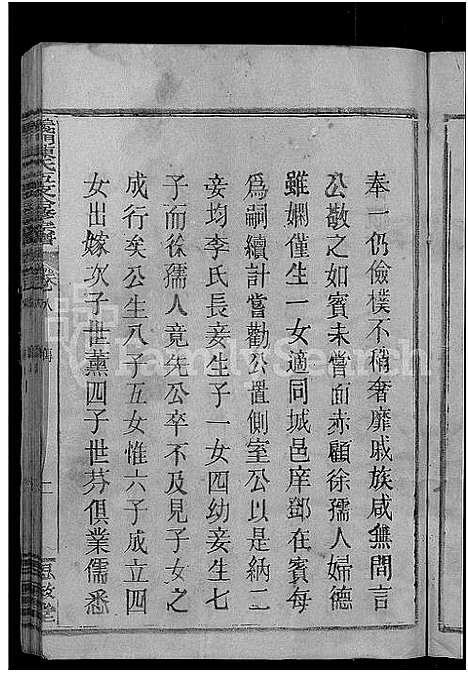 奉一仍儉樸不稍奢靡戚族咸無間言
公敬之如賓未嘗面赤顧徐孺人婦德
雖嫻僅生一女適同城邑庠鄧在賓每
爲嗣續計嘗勸公置側室公以是納二
妾均李氏長妾生子一女四幼妾生七
子而徐孺人竟先公卒不及見子女之
成行矣公生八子五女惟六子成立四
女出嫁次子世薰四子世芬俱業儒悉
卷八
FamilySearch